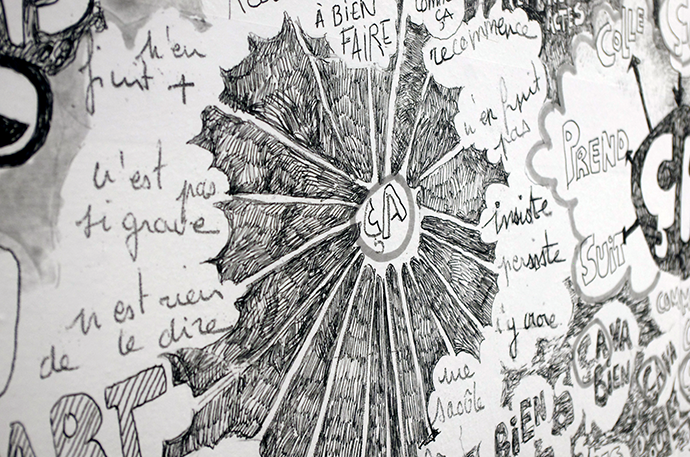 À BIEN
FAIRE
ÇA
recommence
n'en
finit +
n'en finit
pas
n'est pas
si grave
n'est rien
de le dire
ÇA
insiste
persiste
s'y croie
me
saoûle
COLLE
PREND
SUIT
ÇA
ÇA VA
BIEN
BIEN
ART